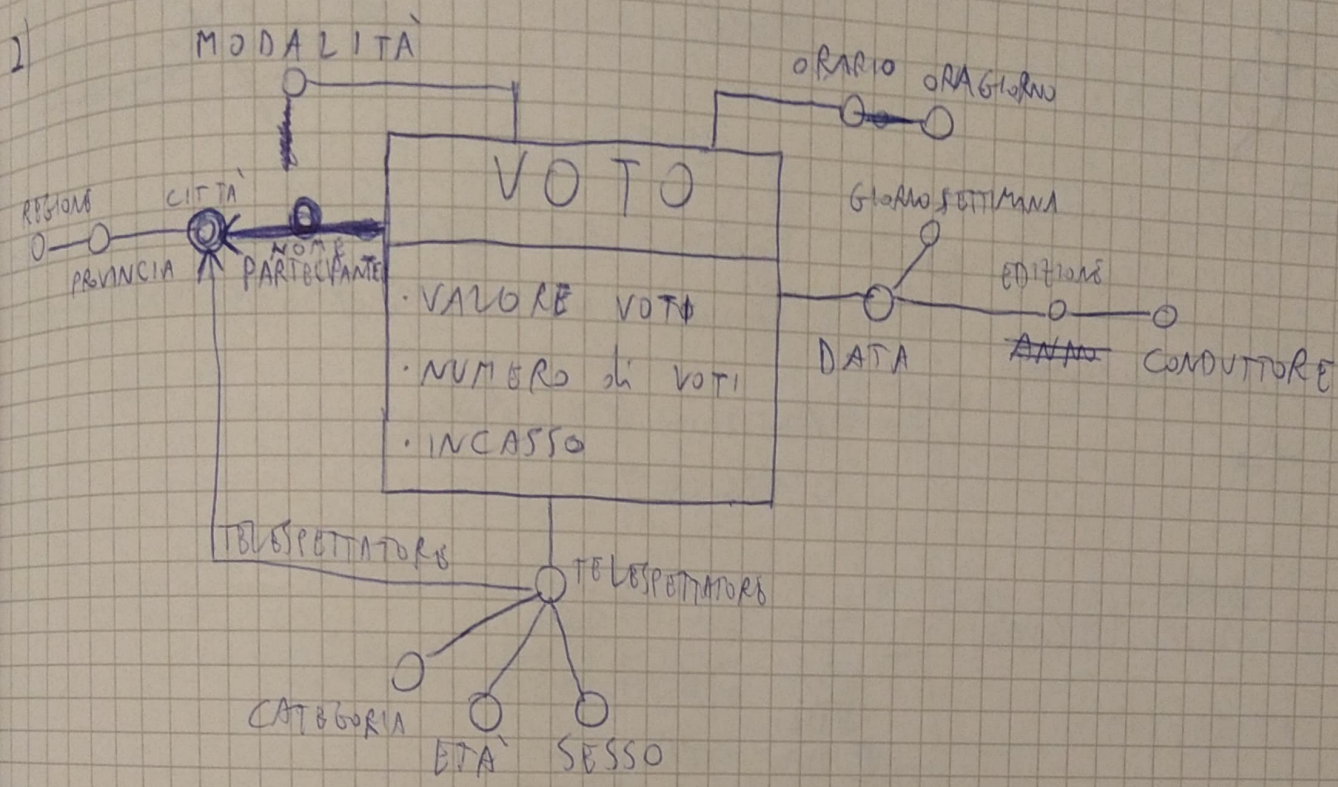 2)
MODALITÀ
ORARIO
ORAGIORNO
VOTO
REGIONE
CITTÀ
PROVINCIA
NOME
PARTECIPANTE
GIORNO SETTIMANA
EDIZIONE
DATA
ANNO
CONDUTTORE
· VALORE VOTI
· NUMERO di VOTI
· INCASSO
TELESPETTATORE
TELESPETTATORE
CATEGORIA
ETÀ
SESSO